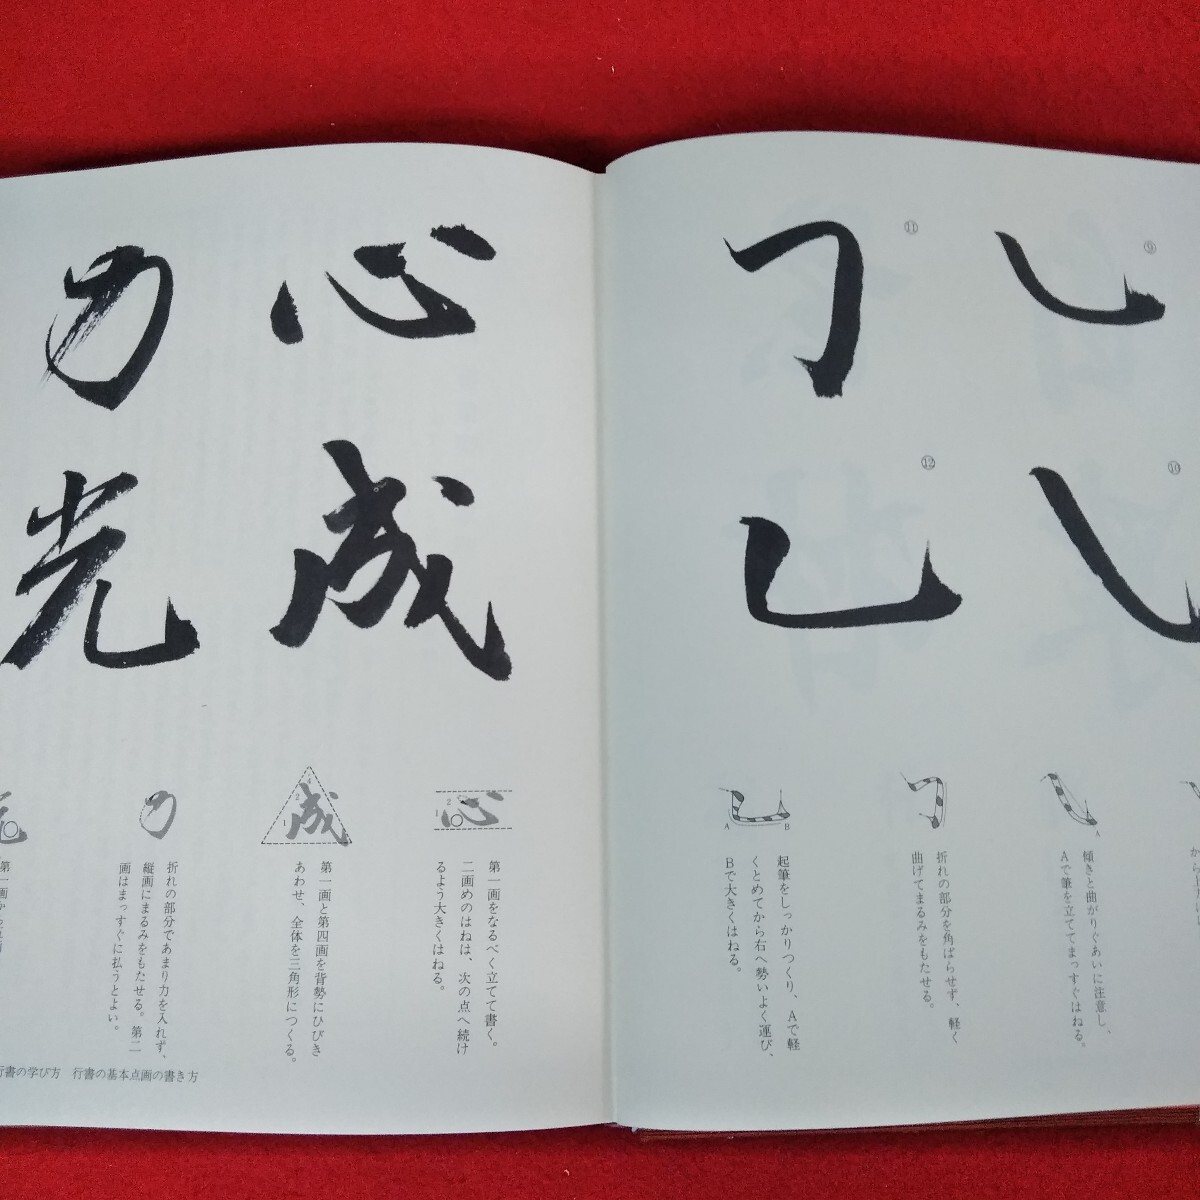 ⑨
⑩
⑪
⑫
A
傾きと曲がりぐあいに注意し、
Aで筆を立ててまっすぐはねる。
折れの部分を角ばらせず、軽く
曲げてまるみをもたせる。
A
B
起筆をしっかりつくり、Aで軽
くとめてから右へ勢いよく運び、
Bで大きくはねる。
心
成
力
光
心
1
2
第一画をなるべく立てて書く。
二画めのはねは、次の点へ続け
るよう大きくはねる。
成
1
2
4
第一画と第四画を背勢にひびき
あわせ、全体を三角形につくる。
力
折れの部分であまり力を入れず、
縦画にまるみをもたせる。第二
画はまっすぐに払うとよい。
光
行書の学び方 行書の基本点画の書き方